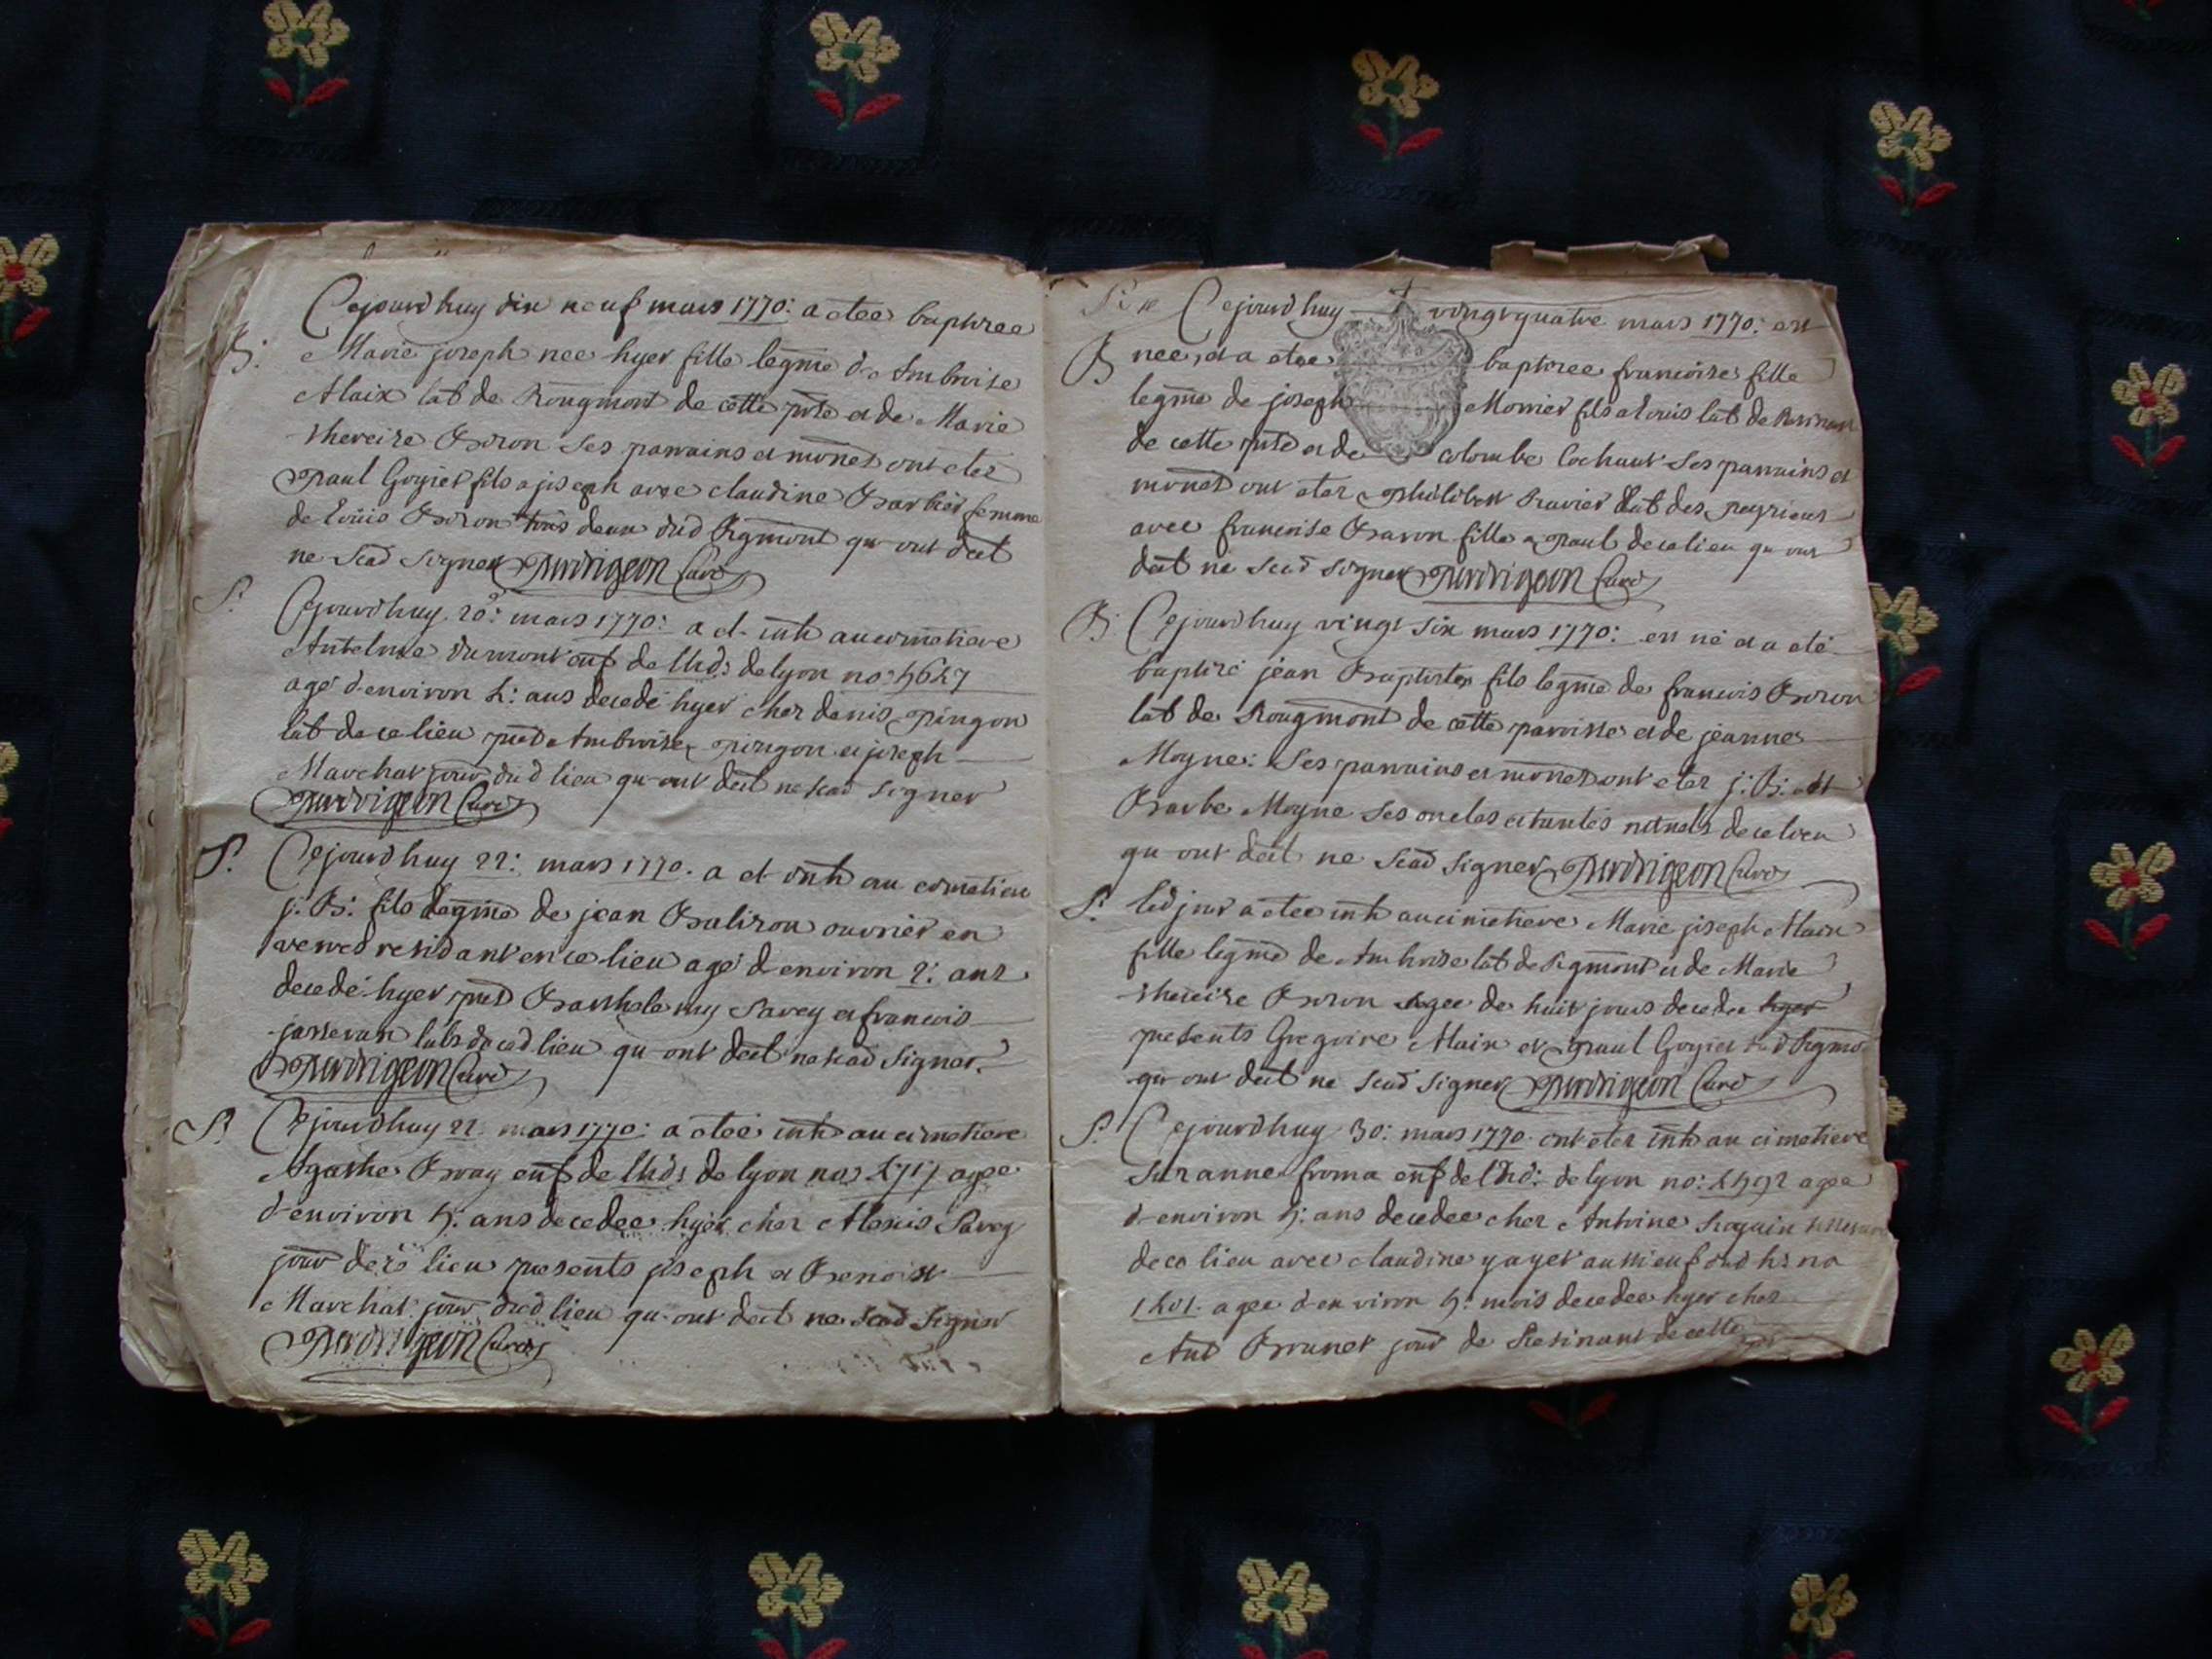 Cejourdhuy dix neuf mars 1770: a etee baptizee
B: Marie joseph nee hyer fille legme de Ambroise
Alaix lab de Rougmont de cette psse et de Marie
thereize Boron Ses parrains et mones ont etez
paul Goyiet fils a joseph avec claudine Barbier femme
de Louis Boron tous deux dud Rgmont qu ont decl
ne Scad signer perdrigeon Curé
S. Cejourdhuy 20: mars 1770: a et inh au cimetiere
Antelme dumont enf de lhd: de lyon no:
age d'environ ans decedé hyer chez denis pingon
lab de ce lieu pnts Ambroise pingon et joseph
Marchat jour dud lieu qu ont decl ne scad signer
perdrigeon Curé
S. Cejourdhuy 22: mars 1770. a et inh au cimetiere
j: B: fils legme de jean Balizou ouvrier en
verres residant en ce lieu agé d'environ 2: ans
decedé hyer pnts Barthelemy Savey et francois
jasseran labs de cedlieu qu ont decl ne scad signer.
perdrigeon Curé
S. Cejourdhuy 22: mars 1770: a eteé inh au cimetiere
Agathe Bray enf de lhd: de lyon no: agee
d'environ ans decedee hyer chez Alexis Savey
jour de ce lieu presents joseph et Benoist
Marchat jour dud lieu qu ont decl ne scad signer
perdrigeon Curé
Cejourdhuy vingt quatre mars 1770: est
B nee, et a etee baptizee francoise fille
legme de joseph Monier fils a Louis lab de
de cette psse et de colombe Cochaut Ses parrains et
mones ont etez philibert Bravier lab des peyrieux
avec francoise Baron fille a paul de ce lieu qu ont
decl ne scad signer perdrigeon Curé
B: Cejourdhuy vingt six mars 1770: en né et a eté
baptizé jean Baptiste fils legme de francois Boron
lab de Rougmont de cette paroisse et de jeanne
Moyne: Ses parrains et mones ont etez j: B: et
Barbe Moyne Ses oncles et tantes de ce lieu
qu ont decl ne scad signer perdrigeon Curé
S: led jour a etee inh au cimetiere Marie joseph Alaix
fille legme de Ambroise lab de Rgmont et de Marie
thereize Boron agee de huit jours decedee hyer
presents Gregoire Alaix et paul Goyiet dud Rgmont
qu ont decl ne scad signer perdrigeon Curé
S. Cejourdhuy 30: mars 1770. ont etez inh au cimetiere
Suzanne froma enf de lhd: de lyon no: agee
d'environ ans decedee chez Antoine
de ce lieu avec claudine yayet aussi enf dud h: no
agee d'environ mois decedee hyer chez
Ant Brunet jour de Resinant de cette psse